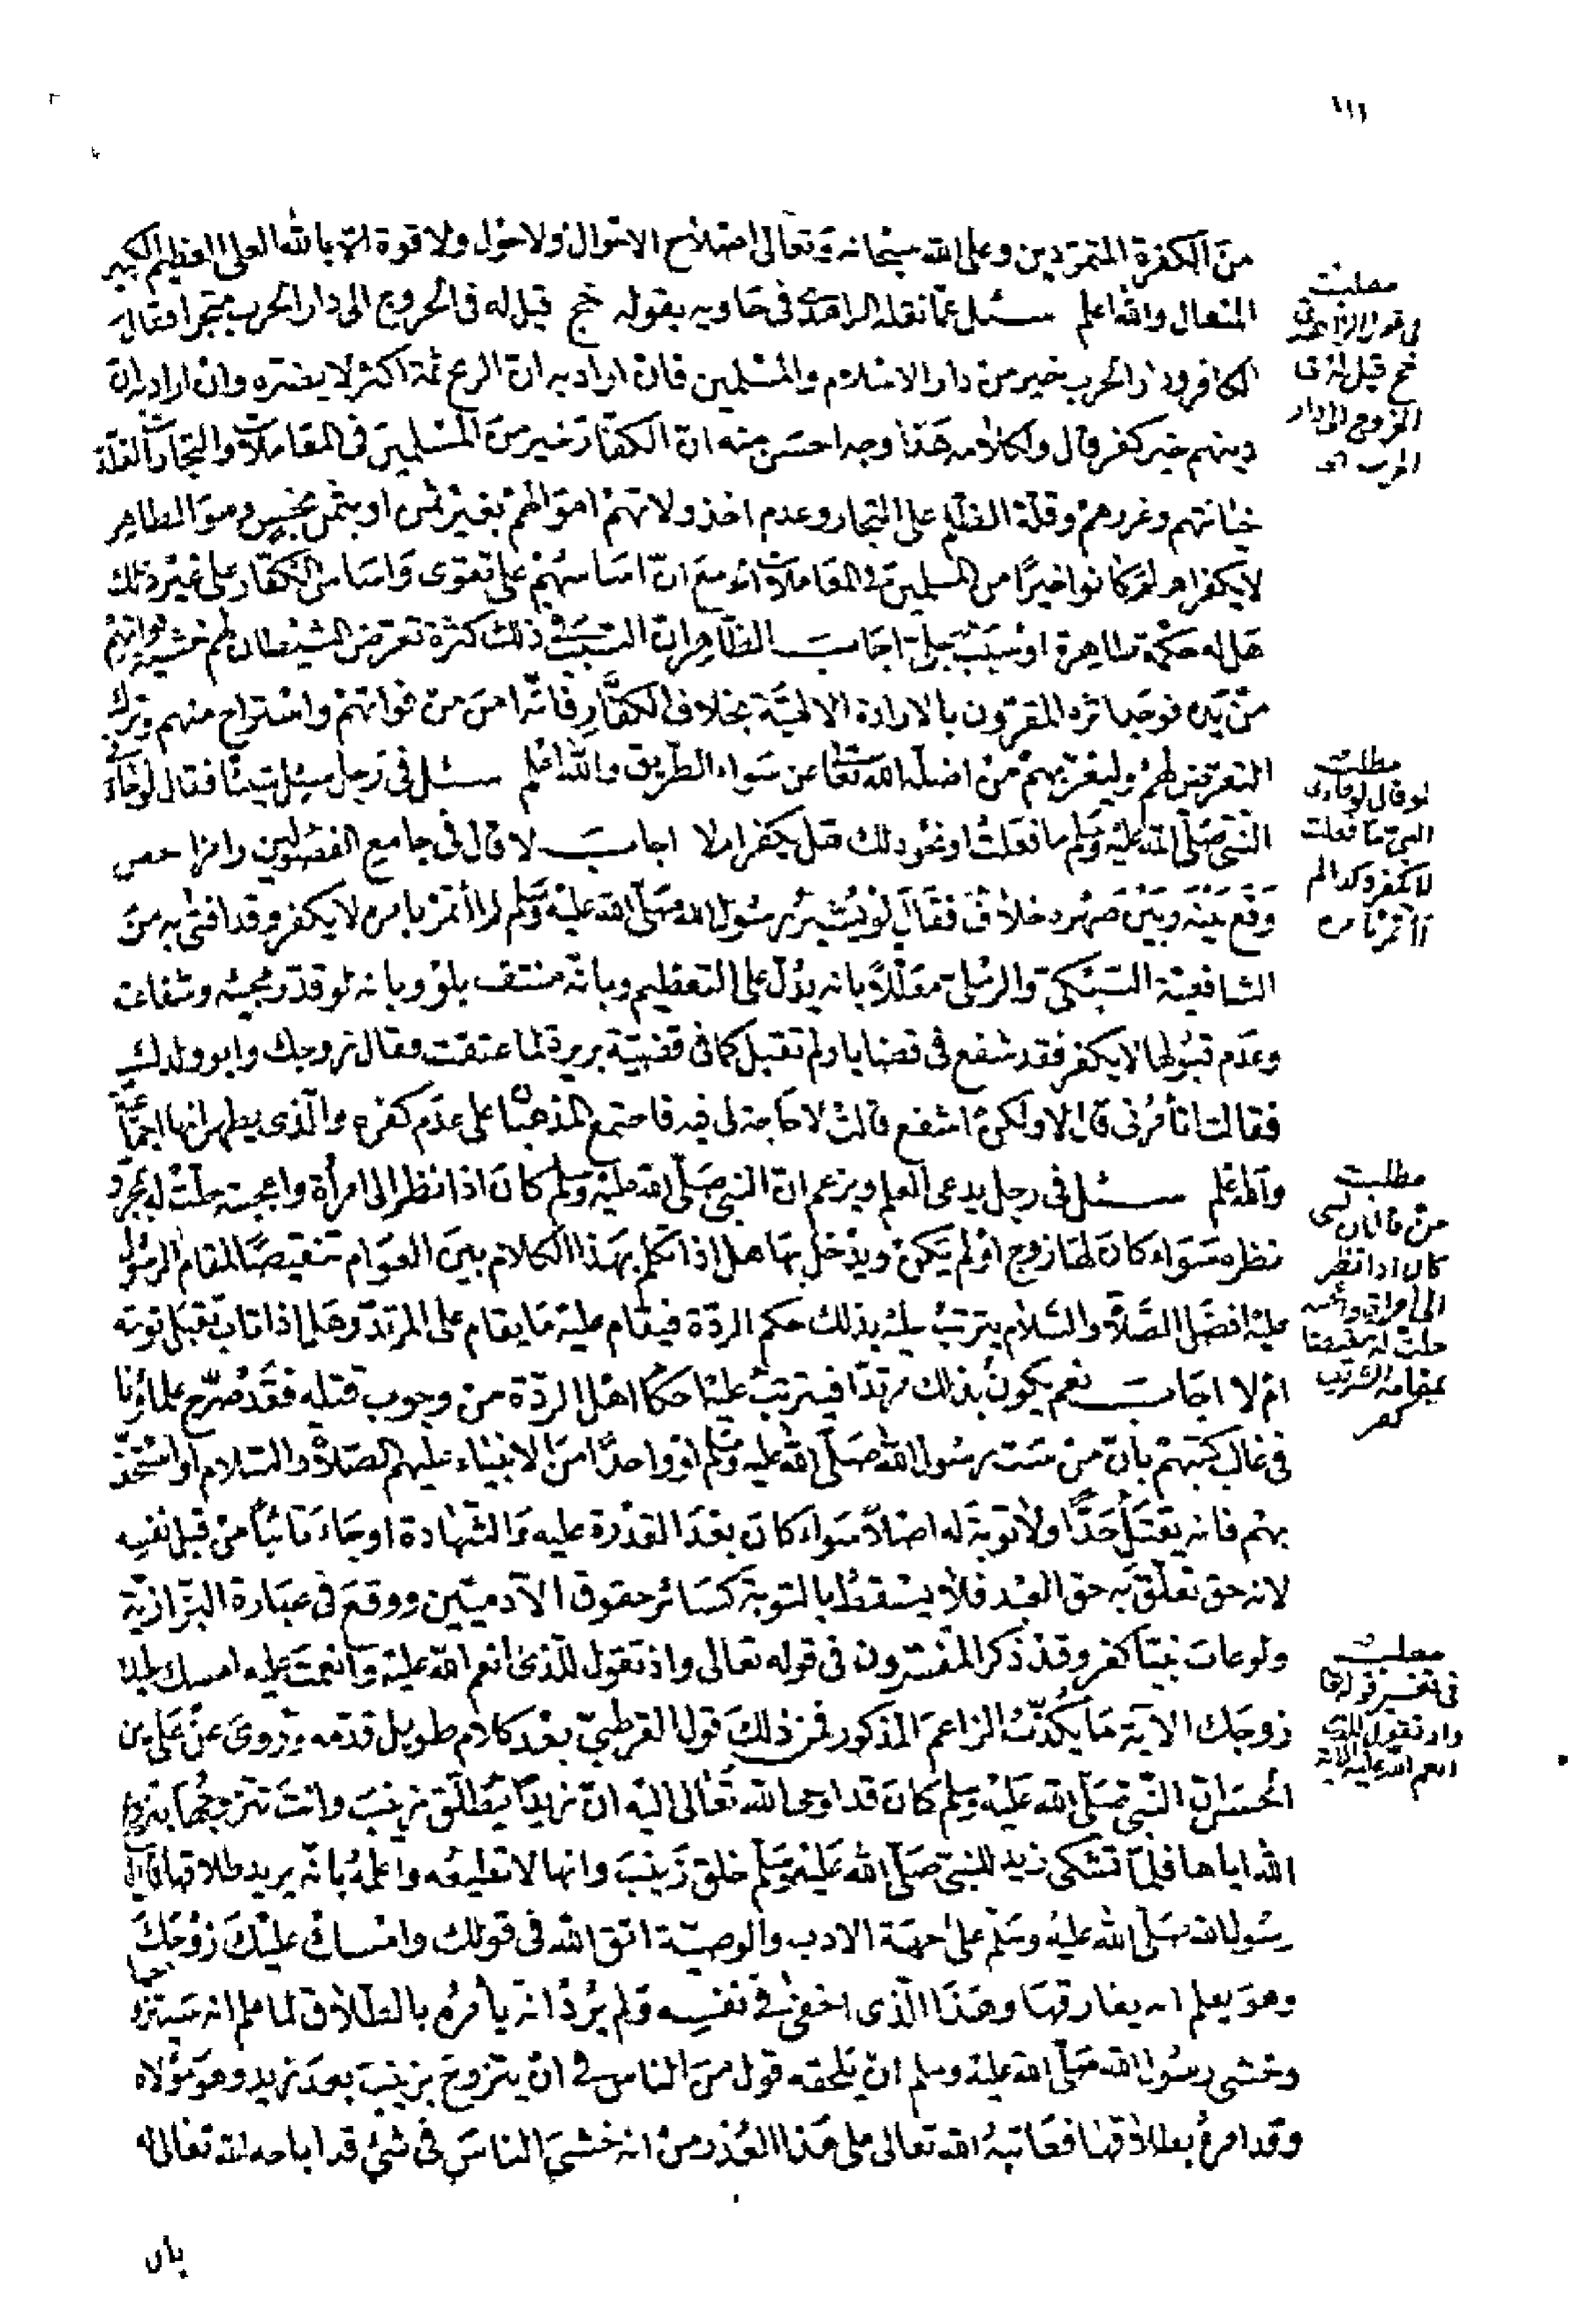 ١١١
من الكفرة المتمردين وعلى الله سبحانه وتعالى اصلاح الاحوال ولا حول ولا قوة الا بالله العلى العظيم الكبير
المتعال والله اعلم سئل عما نقله الزاهدى فى حاويه بقوله خج قيل له فى الخروج الى دار الحرب متجرا فقال
الكافر ودار الحرب خير من دار الاسلام والمسلمين فان اراد به ان الربح ثمة اكثر لا يضره وان اراد ان
دينهم خير كفر قال ولكلامه هذا وجه احسن منه ان الكفار خير من المسلمين فى المعاملات والتجارات لقلة
خيانتهم وغررهم وقلة الظلم على التجار وعدم اخذ ولاتهم اموالهم بغير ثمن او بثمن بخس وهو الظاهر
لا يكفر اهـ لو كانوا خيرا من المسلمين فى المعاملات مع ان اساسهم على تقوى واساس الكفار على غير ذلك
هل له حكمة ظاهرة او سبب جلى اجاب الظاهر ان السبب فى ذلك كثرة تعرض الشيطان لهم خشية فواتهم
من يده فوجد اثره المقرون بالارادة الالهية بخلاف الكفار فانه امن من فواتهم واستراح منهم وترك
التعرض لهم وليغر بهم من اضله الله تعالى عن سواء الطريق والله اعلم سئل فى رجل سئل شيئا فقال لو جاء
النبى صلى الله عليه وسلم ما فعلت او نحو ذلك هل يكفر ام لا اجاب لا قال فى جامع الفصولين رامزا حمص
وقع بينه وبين صهره خلاف فقال لو بشير رسول الله صلى الله عليه وسلم لم أأتمر بامره لا يكفر وقد افتى به من
الشافعية السبكى والرملى معللا بانه يدل على التعظيم وبانه منتف بلو وبانه لو قدر مجيئه وشفاعته
وعدم قبولها لا يكفر فقد شفع فى قضايا ولم تقبل كما فى قضية بريرة لما عتقت وقال زوجك وابو ولدك
فقالت اتأمرنى قال لا ولكن اشفع قالت لا حاجة لى فيه فاجتمع المذهبان على عدم كفره والذى يظهر انها اجماعية
والله اعلم سئل فى رجل يدعى العلم ويزعم ان النبى صلى الله عليه وسلم كان اذا نظر الى امرأة واعجبته حلت له بمجرد
نظره سواء كان لها زوج او لم يكن ويدخل بها هل اذا تكلم بهذا الكلام بين العوام تنقيصا لمقام الرسول
عليه افضل الصلاة والسلام يترتب عليه بذلك حكم الردة فيقام عليه ما يقام على المرتد وهل اذا تاب تقبل توبته
ام لا اجاب نعم يكون بذلك مرتدا فيترتب عليه احكام اهل الردة من وجوب قتله فقد صرح علماؤنا
فى غالب كتبهم بان من سب رسول الله صلى الله عليه وسلم او واحدا من الانبياء عليهم الصلاة والسلام او استخف
بهم فانه يقتل حدا ولا توبة له اصلا سواء كان بعد القدرة عليه والشهادة او جاء تائبا من قبل نفسه
لانه حق تعلق به حق العبد فلا يسقط بالتوبة كسائر حقوق الآدميين ووقع فى عبارة البزازية
ولو عاب نبيا كفر وقد ذكر المفسرون فى قوله تعالى واذ تقول للذى انعم الله عليه وانعمت عليه امسك عليك
زوجك الآية ما يكذب الزاعم المذكور فمن ذلك قول القرطبى بعد كلام طويل قدمه وروى عن على بن
الحسين ان النبى صلى الله عليه وسلم كان قد اوحى الله تعالى اليه ان زيدا يطلق زينب وانت تتزوجها بتزويج
الله اياها فلما تشكى زيد للنبى صلى الله عليه وسلم خلق زينب وانها لا تطيعه واعلمه بانه يريد طلاقها قال له
رسول الله صلى الله عليه وسلم على جهة الادب والوصية اتق الله فى قولك وامسك عليك زوجك
وهو يعلم انه يفارقها وهذا الذى اخفى فى نفسه ولم يرد انه يأمره بالطلاق لما علم انه سيتزوجها
وخشى رسول الله صلى الله عليه وسلم ان يلحقه قول من الناس فى ان يتزوج بزينب بعد زيد وهو مولاه
وقد امره بطلاقها فعاتبه الله تعالى على هذا العذر من انه خشى الناس فى شئ قد اباحه الله تعالى له
بان
مطلب
فى قول الزاهدى
خج قيل له فى
الخروج الى دار
الحرب الخ
مطلب
لو قال لو جاء
النبى ما فعلت
لا يكفر وكذا لم
أأتمر بامره
مطلب
من قال ان النبى
كان اذا نظر
الى امرأة واعجبته
حلت له تنقيصا
بمقامه الشريف
كفر
مطلب
فى تفسير قوله تعالى
واذ تقول للذى
انعم الله عليه الآية